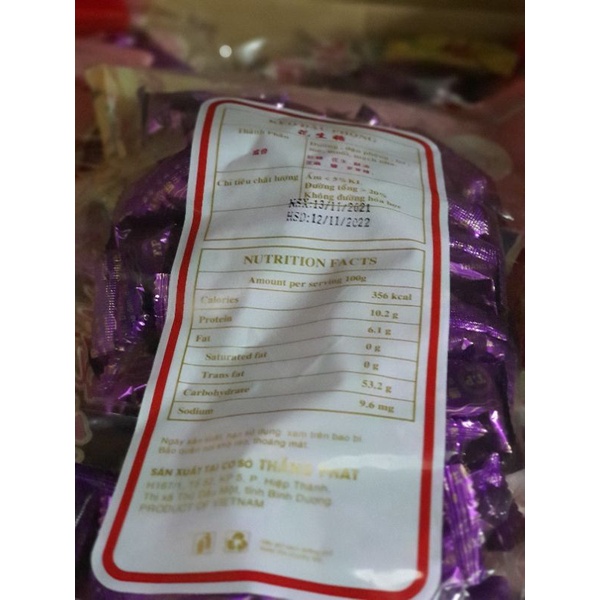 KẸO ĐẬU PHỘNG
花生糖
Thành Phần
Chỉ tiêu chất lượng
Ẩm < 5% KL
Đường tổng > 20%
Không đường hóa học
NSX:13/11/2021
HSD:12/11/2022
NUTRITION FACTS
Amount per serving 100g
Calories 356 kcal
Protein 10.2 g
Fat 6.1 g
Saturated fat 0 g
Trans fat 0 g
Carbohydrate 53,2 g
Sodium 9.6 mg
Ngày sản xuất, hạn sử dụng: xem trên bao bì.
Bảo quản nơi khô ráo, thoáng mát.
SẢN XUẤT TẠI CƠ SỞ THẮNG PHÁT
KP 5, P. Hiệp Thành,
Thị xã Thủ Dầu Một, tỉnh Bình Dương.
PRODUCT OF VIETNAM